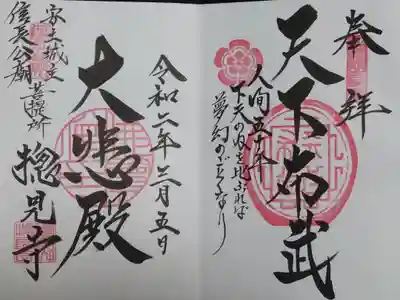 奉拝
天下布武
人間五十年
下天の内を比ぶれば
夢幻のごとくなり
令和六年三月五日
大悲殿
安土城主
信長公廟菩提所
摠見寺